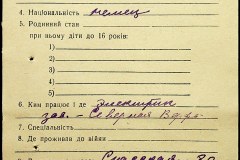 4. Національність немец
5. Родинний стан
при ньому діти до 16 років:
1)
2)
3)
4)
5)
6. Ким працює і де Электрик
зав. - Северная Верфь
7. Спеціальність
8. Де проживав до війни
Спасская 80